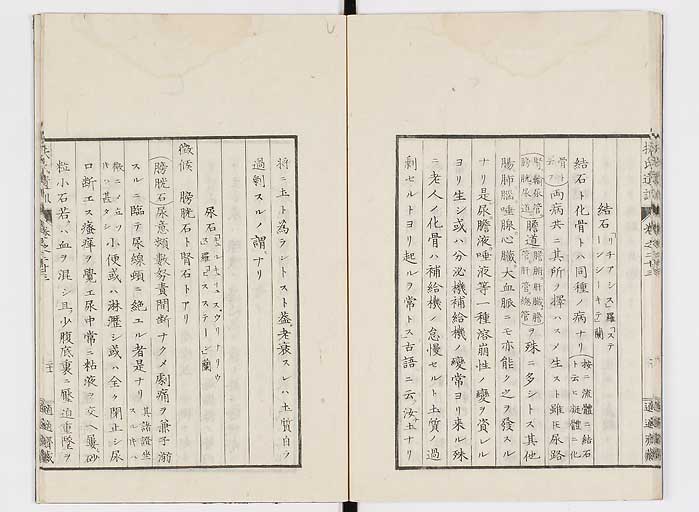 扶氏遺訓 卷之廿三
結石 「リチアシス」羅「ステーンシーキテ」蘭
結石ト化骨トハ同種ノ病ナリ 按ニ流體ニ結石ト云ヒ凝體ニ化
骨ト云フ 両病共ニ其所ヲ擇ハスメ生スト雖𪜈尿路
腎輸尿管膀胱尿道 膽道 膽腑肝臓膽管肝管總管 ヲ殊ニ多シトス其他
腸肺腦唾腺心臓大血脈ニモ亦能ク之ヲ發スル
ナリ是尿膽液唾液等一種溶崩性ノ變ヲ資レル
ヨリ生シ或ハ分泌機補給機ノ變常ヨリ來ル殊
ニ老人ノ化骨ハ補給機ノ怠慢セルト土質ノ過
剰セルトヨリ起ルヲ常トス古語ニ云ク汝土ナリ
將ニ土ト為ラントスト蓋老衰スレハ土質自ラ
過剰スルノ謂ナリ
尿石 羅「ステーン」蘭
徴候 膀胱石ト腎石トアリ
膀胱石尿意頻數努責間斷ナクメ劇痛ヲ兼子溺
スルニ臨テ尿線頓ニ絶ユル者是ナリ 其諸證坐スル𪜈ハ
微ニメ立ツ𪜈ハ甚タシ 小便或ハ淋瀝シ或ハ全ク閉止シ尿
口斷エス癢痒ヲ覺エ尿中常ニ粘液ヲ交ヘ屢砂
粒小石若ハ血ヲ混シ且少腹底裏ニ壓迫重墜ヲ
扶氏遺訓 卷之廿三